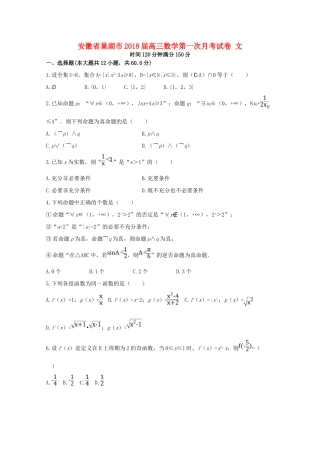 安徽省巢湖市2018届高三数学第一次月考试卷 文
时间120分钟满分150分
一、选择题(本大题共12小题，共60.0分)
1.设全集U=R，集合A={x|x²-3x≥0}，B={x∈N|x≤3}，则（∁UA）∩B等于（ ）
A.∅ B.{0，1} C.{1，2} D.{1，2，3}
≤4”．则下列命题为真命题的是（ ）
A.（￢p）∧q B.p∧q
C.p∨（￢q） D.（￢p）∧（￢q）
3.已知x为实数，则“1/x<1”是“x>1”的（ ）
A.充分非必要条件 B.充要条件
C.必要非充分条件 D.既不充分也不必要条件
4.下列命题中正确的个数是（ ）
①命题“∀x∈（1，+∞），2ˣ>2”的否定是“∀x∉（1，+∞），2ˣ>2”
②“a=2”是“|a|=2”的必要不充分条件；
③若命题p为真，命题¬q为真，则命题p∧q为真；
④命题“在△ABC中，若sinA=1/2，则A=π/6”的逆否命题为真命题．
A.0个 B.1个 C.2个 D.3个
5.下列各组函数为同一函数的是（ ）
A.f（x）=1；g（x）=x/x B.f（x）=x-2；g（x）=(x²-4)/(x+2) C.f（x）=|x|；g（x）=√x²
D.f（x）=√(x+1)·√(x-1)；g（x）=√(x²-1)
6.设f（x）是定义在R上周期为2的奇函数，当0≤x≤1时，f（x）=x²-x，则f(-5/2)=（ ）
A.-1/4 B.-1/2 C.1/4 D.1/2